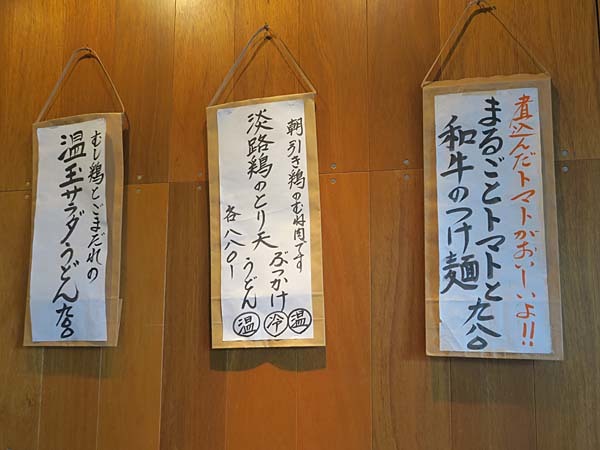 煮込んだトマトがおいしいよ!!
まるごとトマトと
和牛のつけ麺 九八〇
朝引き鶏のむね肉です
淡路鶏のとり天 ぶっかけ 冷 温
うどん 温
各八八〇ー
むし鶏とごまだれの
温玉サラダうどん 九〇〇